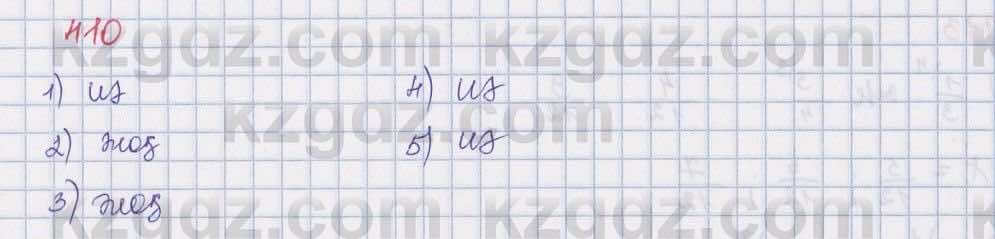 410
kzgdz.com kzgdz.com
1) иә 4) иә
kzgdz.com
2) жоқ 5) иә
3) жоқ
kzgdz.com kzgdz.com